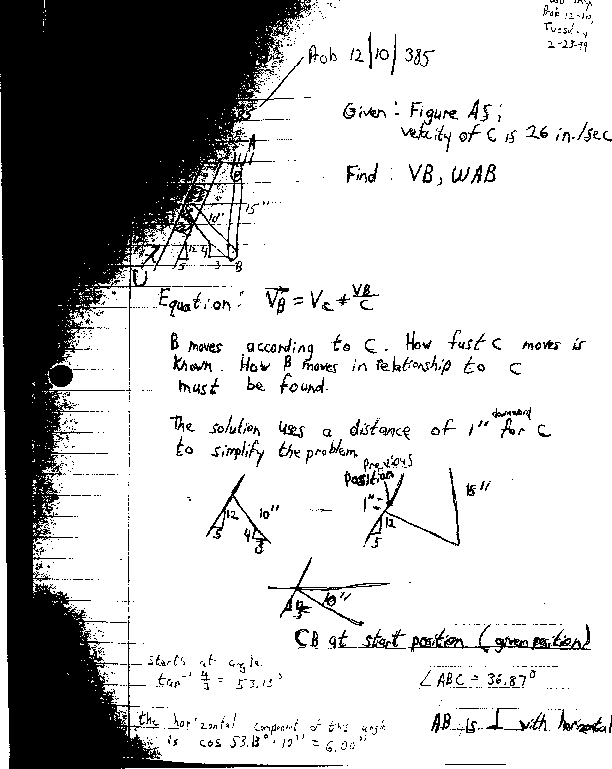 Prob 12-10,
Tuesday
2-23-99
Prob 12|10|385
Given: Figure A§;
velocity of C is 26 in./sec
Find: VB, WAB
A
15"
10"
12
4
5
3
B
U
Equation: VB = Vc + VB/C
B moves according to C. How fast C moves is
known. How B moves in relationship to C
must be found.
downward
The solution uses a distance of 1" for C
to simplify the problem.
previous
position
1"
15"
12
10"
5
4
3
12
5
10"
CB at start position (given position)
starts at angle
tan⁻¹ 4/3 = 53.13°
∠ABC = 36.87°
the horizontal component of this angle
is cos 53.13° · 10" = 6.00"
AB is ⊥ with horizontal